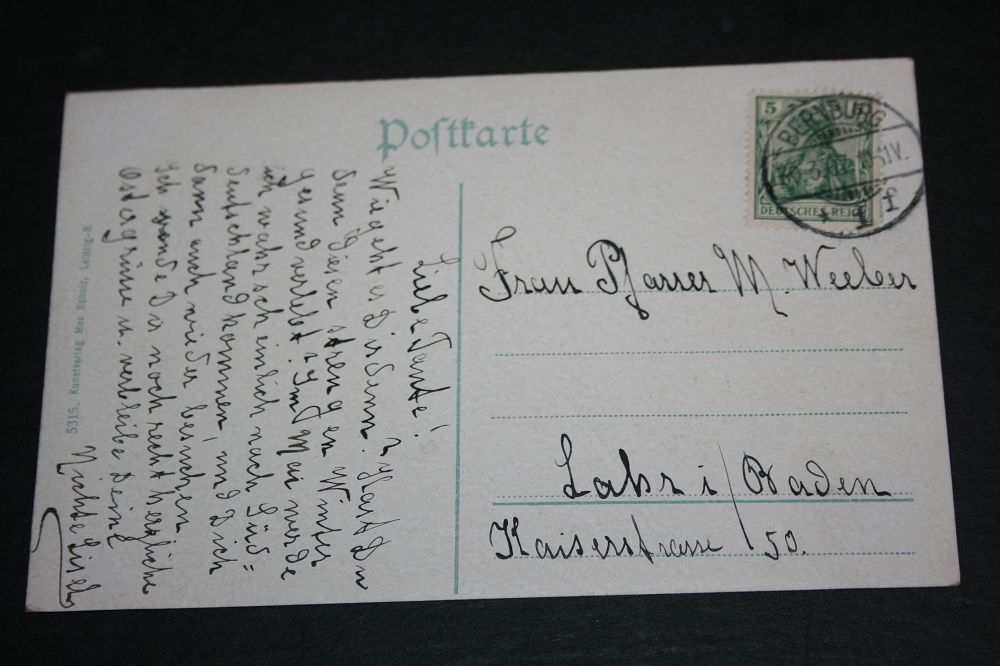 Postkarte
5
BERNBURG
DEUTSCHES REICH
1 f
Frau Pfarrer M. Weeber
Lahr i/Baden
Kaiserstrasse 50.
Liebe Tante!
Wie geht es Dir denn? Hast Du
denn diesen strengen Winter
gesund verlebt? Im Mai werde
ich wahrscheinlich nach Süd=
deutschland kommen, und Dich
dann auch wieder besuchen.
Ich sende Dir noch recht herzliche
Ostergrüsse u. verbleibe Deine
Nichte Lisel
5315. Kunstverlag Max Seholz, Leipzig-R.